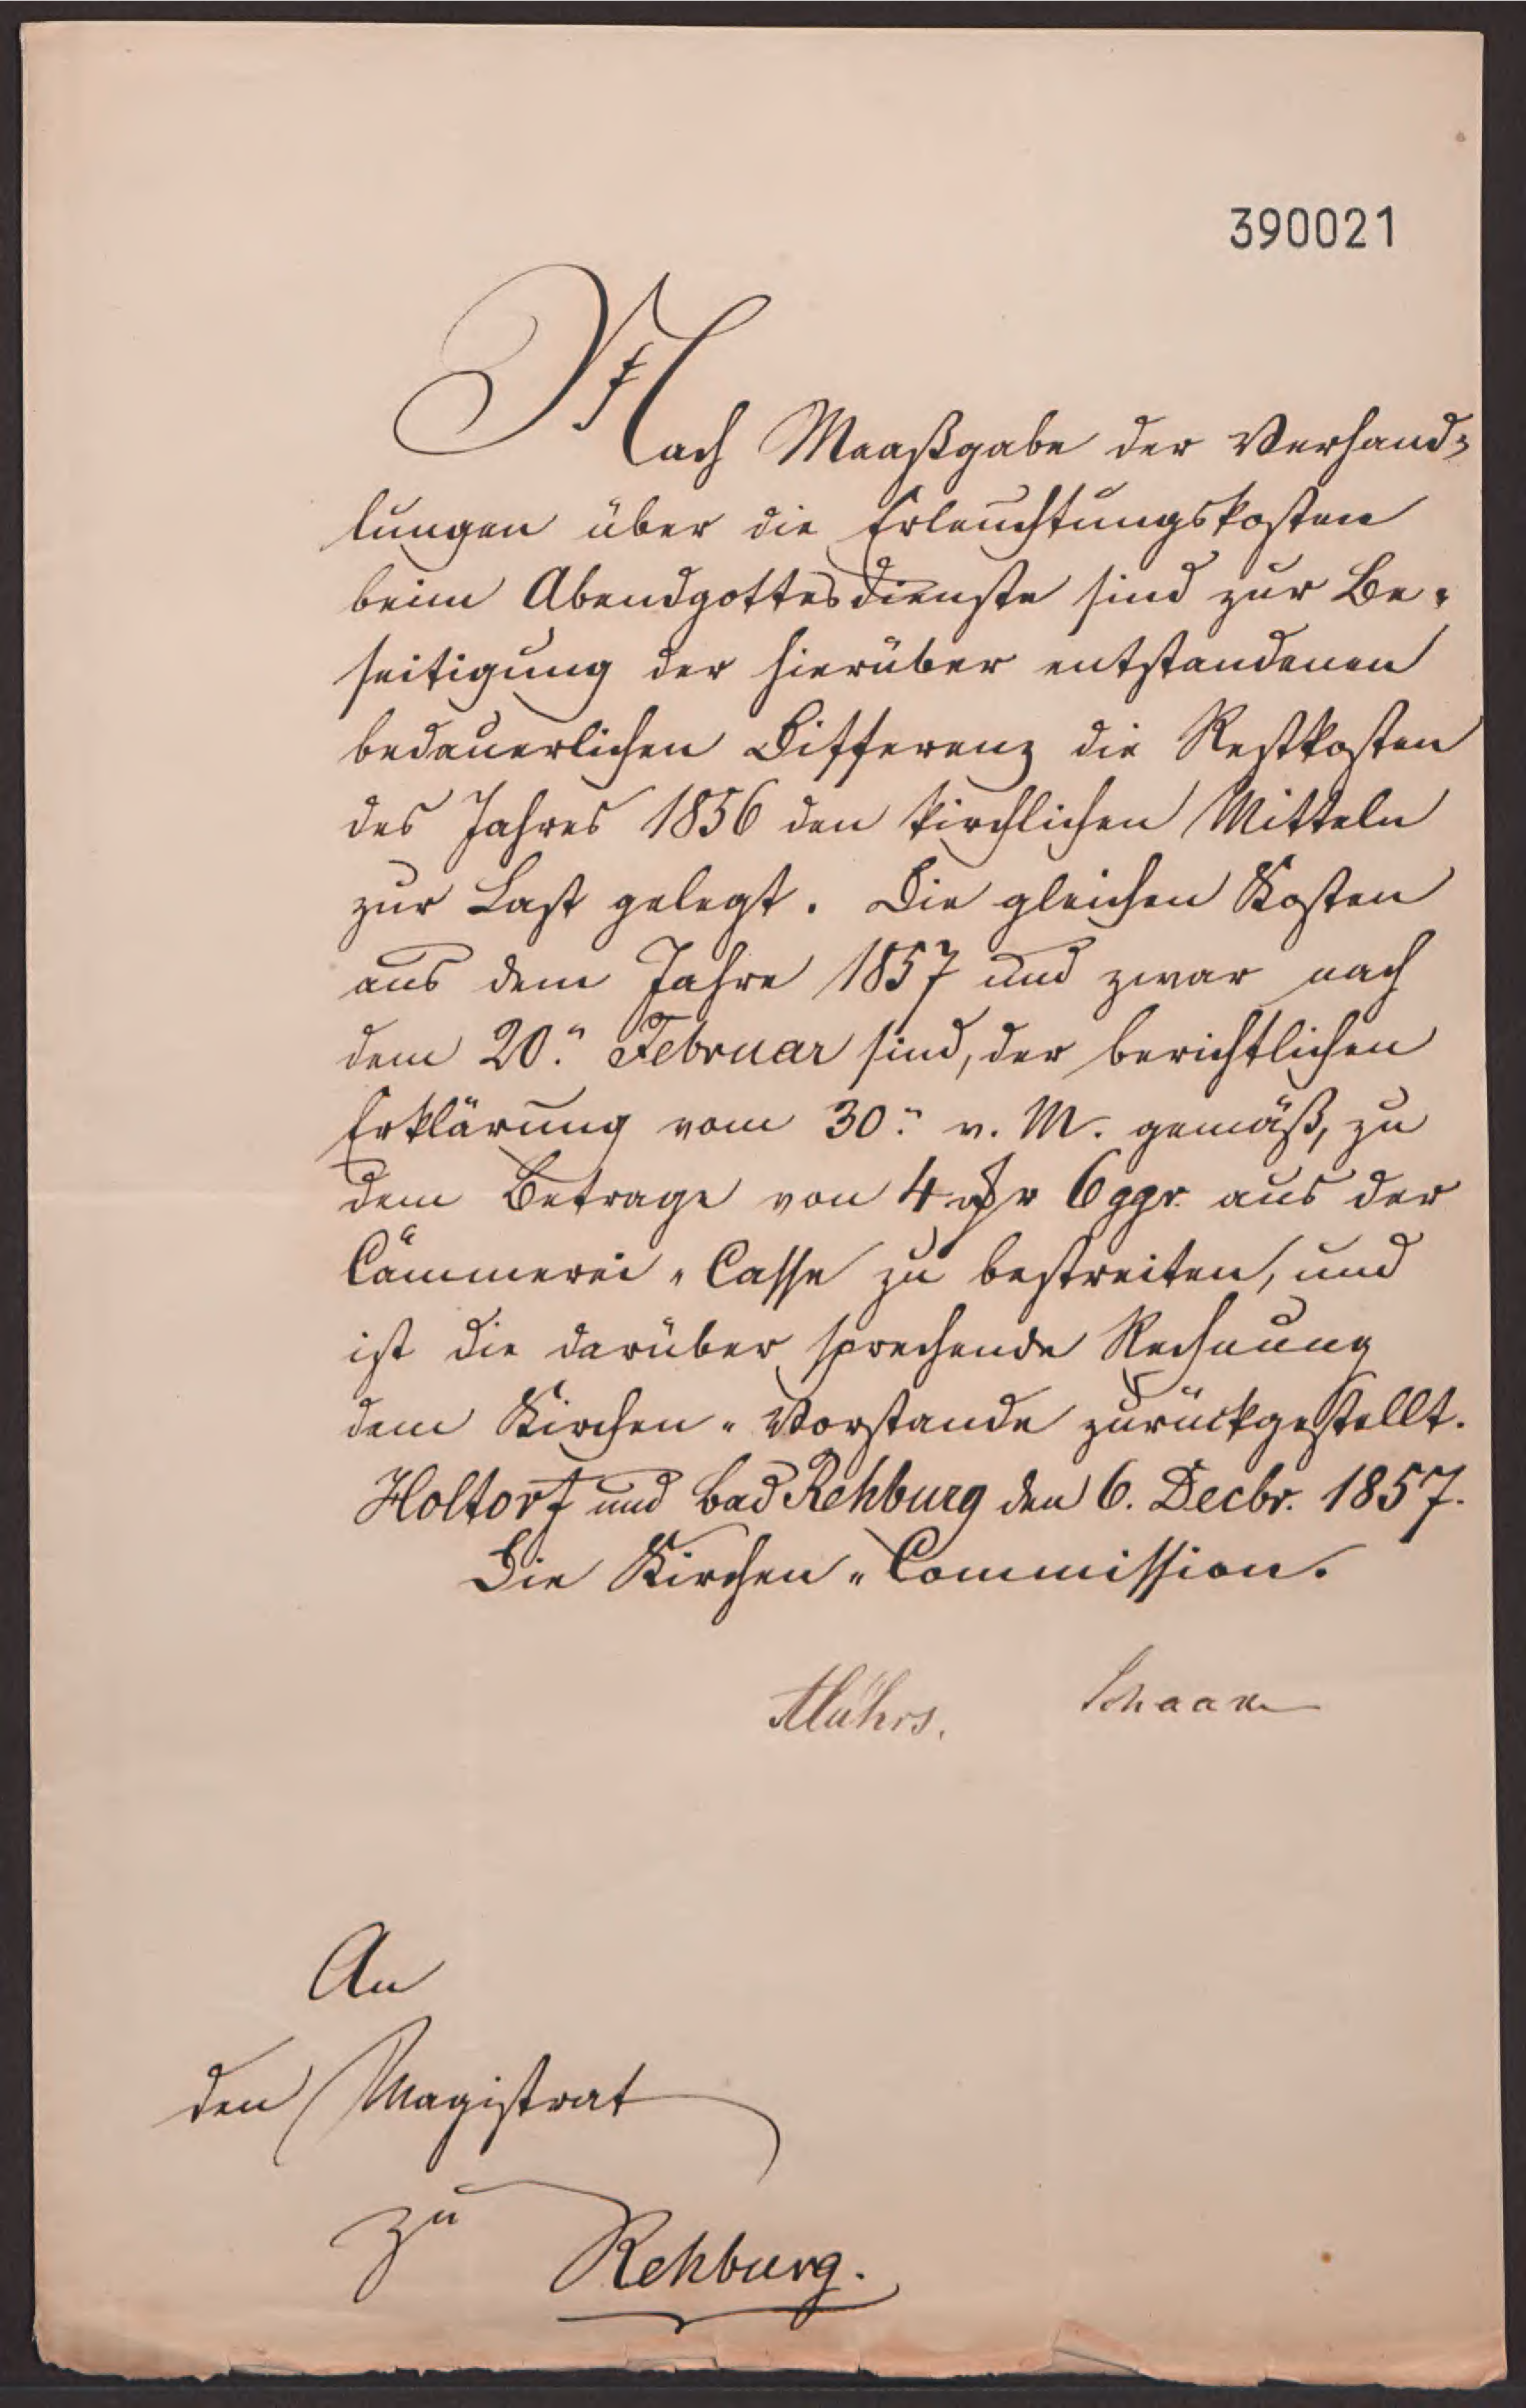 390021
Nach Maaßgabe der Verhand-
lungen über die Erleuchtungskosten
beim Abendgottesdienste sind zur Be-
seitigung der hierüber entstandenen
bedauerlichen Differenz die Restkosten
des Jahres 1856 den kirchlichen Mitteln
zur Last gelegt. Die gleichen Kosten
aus dem Jahre 1857 und zwar nach
dem 20. Februar sind, der berichtlichen
Erklärung vom 30. v. M. gemäß, zu
dem Betrage von 4 6 ggr. aus der
Cämmerei-Casse zu bestreiten, und
ist die darüber sprechende Rechnung
dem Kirchen-Vorstande zurückgestellt.
Holtorf und Bad Rehburg den 6. Decbr. 1857.
Die Kirchen-Commission.
An
den Magistrat
zu
Rehburg.